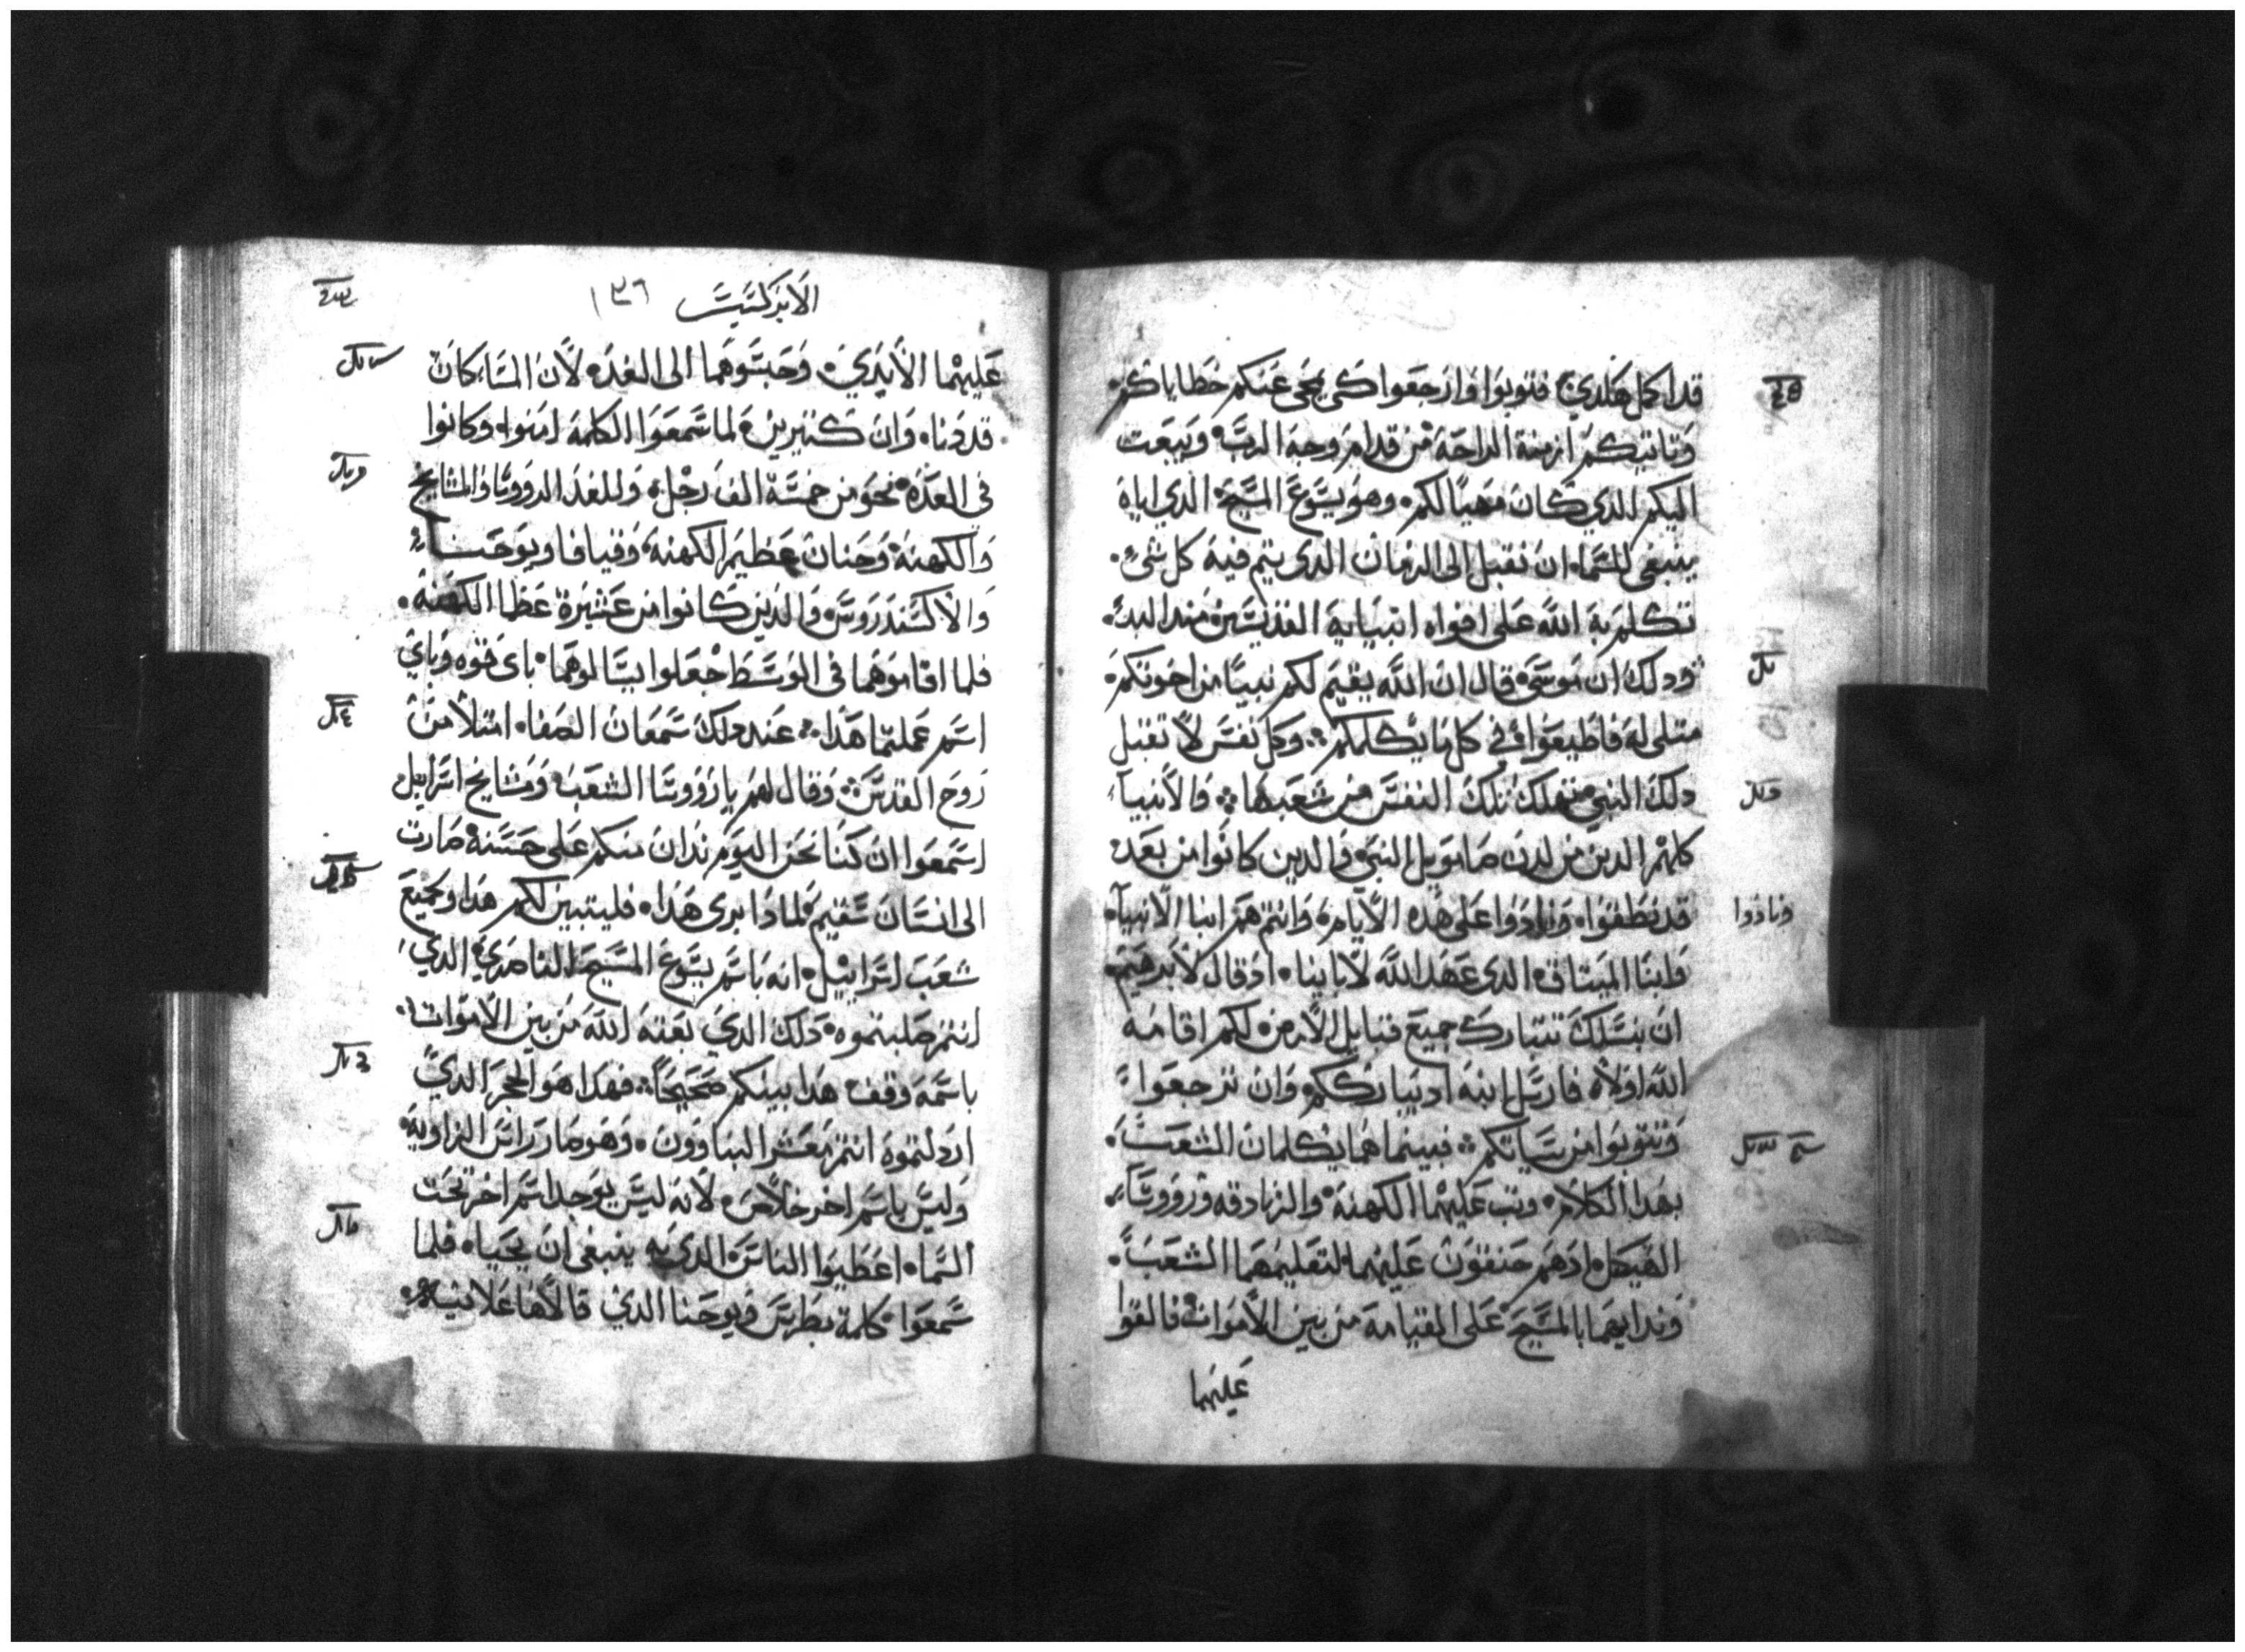 قد اكمل هكدي فتوبوا وارجعوا كى يمحى عنكم خطاياكم
وتاتيكم ازمنة الراحة من قدام وجه الرب ويبعت
اليكم الدي كان مهيا لكم وهو يسوع المسيح الدي اياه
ينبغي للسماء ان تقبل الى الزمان الدى يتم فيه كل شى
تكلم به الله على افواه انبيايه القديسين مند البدء
ودلك ان موسى قال ان الله يقيم لكم نبيا من اخوتكم
متلى له فاطيعوا فى كل ما يكلمكم وكل نفس لا تقبل
دلك النبي تهلك تلك النفس من شعبها والانبياء
كلهم الدين من لدن صامويل النبي والدين كانوا من بعده
قد نطقوا ونادوا على هده الايام وانتم هم ابنا الانبياء
ونادوا
وابنا الميتاق الدى عهد الله لاباينا اد قال لابرهيم
ان بنسلك تتبارك جميع قبايل الارض لكم اقامه
الله اولا فارسل ابنه اد يبارككم وان ترجعوا
وتتوبوا من سياتكم فبينما هما يكلمان الشعب
بهدا الكلام وتب عليهما الكهنة والزنادقه وروسا
الهيكل ادهم حنقون عليهما لتعليمهما الشعب
وندايهما بالمسيح على القيامه من بين الاموات فالقوا
عليهما
الابركسيس
١٣٦
عليهما الايدي وحبسوهما الى الغد لان المساء كان
قد دنا وان كتيرين لما سمعوا الكلمة امنوا وكانوا
في العدة نحو من خمسة الف رجل وللغد الروسا والمشايخ
والكهنة وحنان عظيم الكهنة وقيافا ويوحنا
والاكسندروس والذين كانوا من عشيرة عظما الكهنة
فلما اقاموهما فى الوسط جعلوا يسالوهما باى قوه وباي
اسم عملتما هذا عند دلك سمعان الصفا امتلا من
روح القدس وقال لهم يا رووسا الشعب ومشايخ اسرايل
اسمعوا ان كنا نحن اليوم ندان منكم على حسنة صارت
الى انسان سقيم لماذا برى هذا فليتبين لكم هدا وجميع
شعب اسراييل انه باسم يسوع المسيح الناصري الدي
انتم صلبتموه دلك الدي بعته الله من بين الاموات
باسمه وقف هدا بينكم صحيحا فهدا هو الحجر الدي
اردلتموه انتم معشر البناوون وهو صار راس الزاوية
وليس باسم اخر خلاص لانه ليس يوجد اسم اخر تحت
السماء اعطيوا الناس الدى به ينبغي ان يحيا فلما
سمعوا كلمة بطرس ويوحنا الدي قالاها علانيه